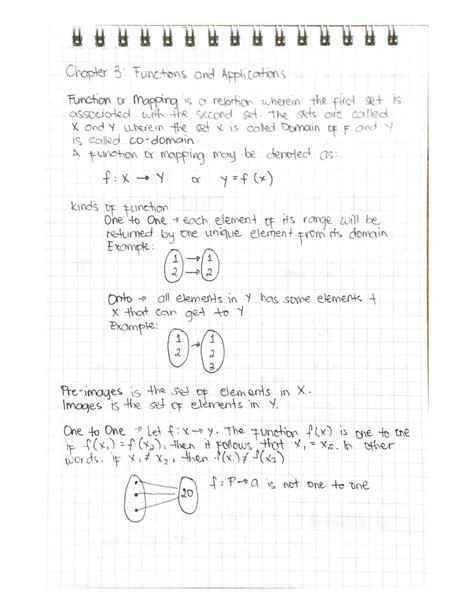 Chapter 3: Functions and Applications
Function or Mapping is a relation wherein the first set is
associated with the second set. The sets are called
X and Y wherein the set X is called Domain of F and Y
is called co-domain
A function or mapping may be denoted as:
f: X → Y or y = f(x)
Kinds of function
One to One → each element of its range will be
returned by one unique element from its domain
Example:
1 → 1
2 → 2
Onto → all elements in Y has some elements
X that can get to Y
Example:
1 1
2 → 2
3
Pre-images is the set of elements in X.
Images is the set of elements in Y.
One to One → Let f: x → y. The function f(x) is one to one
if f(x₁) = f(x₂), then it follows that x₁ = x₂. In other
words, if x₁ ≠ x₂, then f(x₁) ≠ f(x₂)
20
f: P → a is not one to one